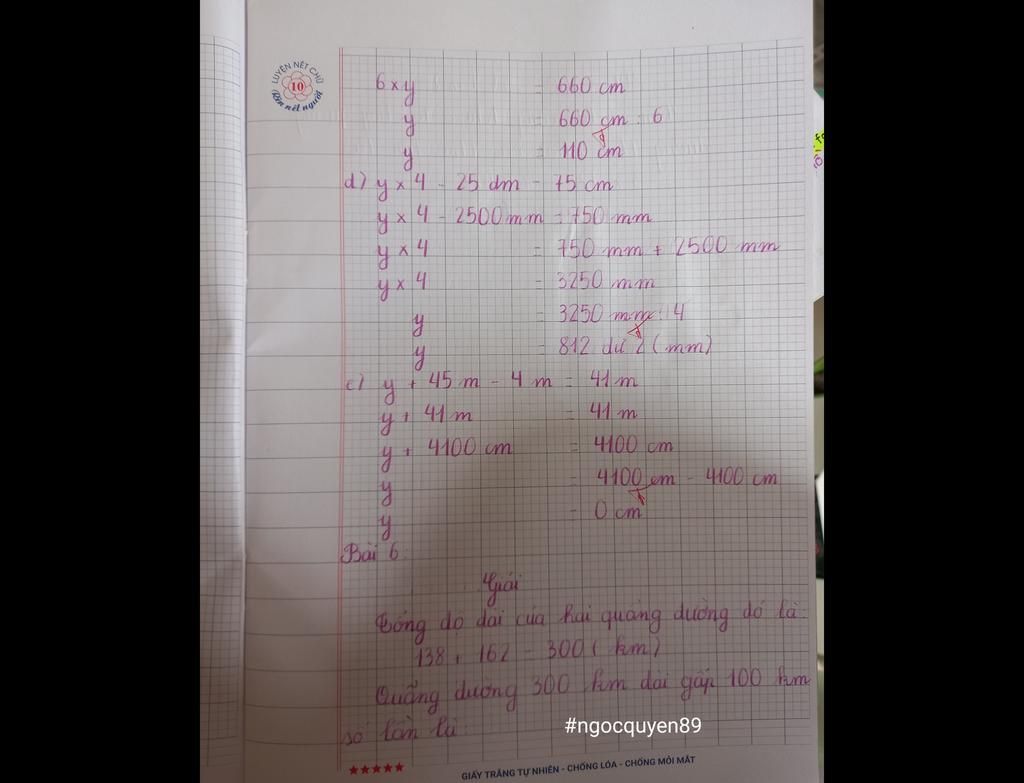 LUYỆN NÉT CHỮ
10
Rèn nết người
6 x y = 660 cm
y = 660 cm : 6
y = 110 cm
d) y x 4 - 25 dm = 75 cm
y x 4 - 2500 mm = 750 mm
y x 4 = 750 mm + 2500 mm
y x 4 = 3250 mm
y = 3250 mm : 4
y = 812 dư 2 (mm)
e) y + 45 m - 4 m = 41 m
y + 41 m = 41 m
y + 4100 cm = 4100 cm
y = 4100 cm - 4100 cm
y = 0 cm
Bài 6:
Giải
Tổng độ dài của hai quãng đường đó là:
138 + 162 = 300 (km)
Quãng đường 300 km dài gấp 100 km
số lần là:
#ngocquyen89
GIẤY TRẮNG TỰ NHIÊN - CHỐNG LÓA - CHỐNG MỎI MẮT